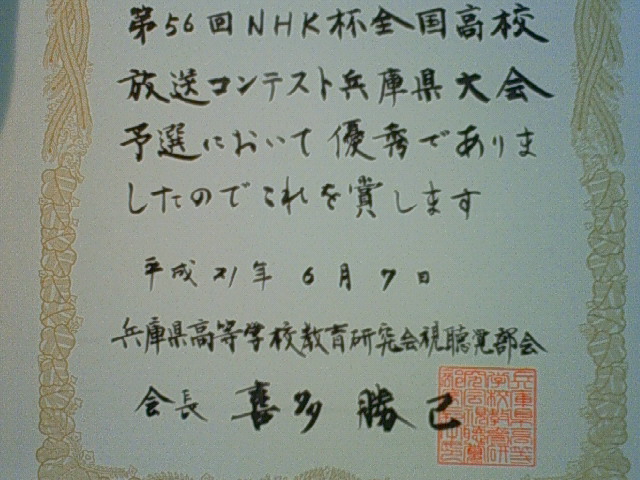 第56回NHK杯全国高校
放送コンテスト兵庫県大会
予選において優秀でありま
したのでこれを賞します
平成21年6月7日
兵庫県高等学校教育研究会視聴覚部会
会長 喜多勝己